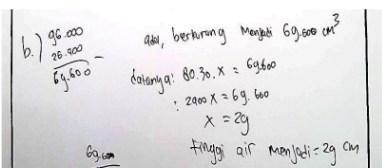 b.) 96.000
26.400 -
69.600
adol, berkurang menjadi 69.600 cm³
datanya: 80.30.x = 69.600
: 2400x = 69.600
x = 29
tinggi air menjadi = 29 cm
69.600